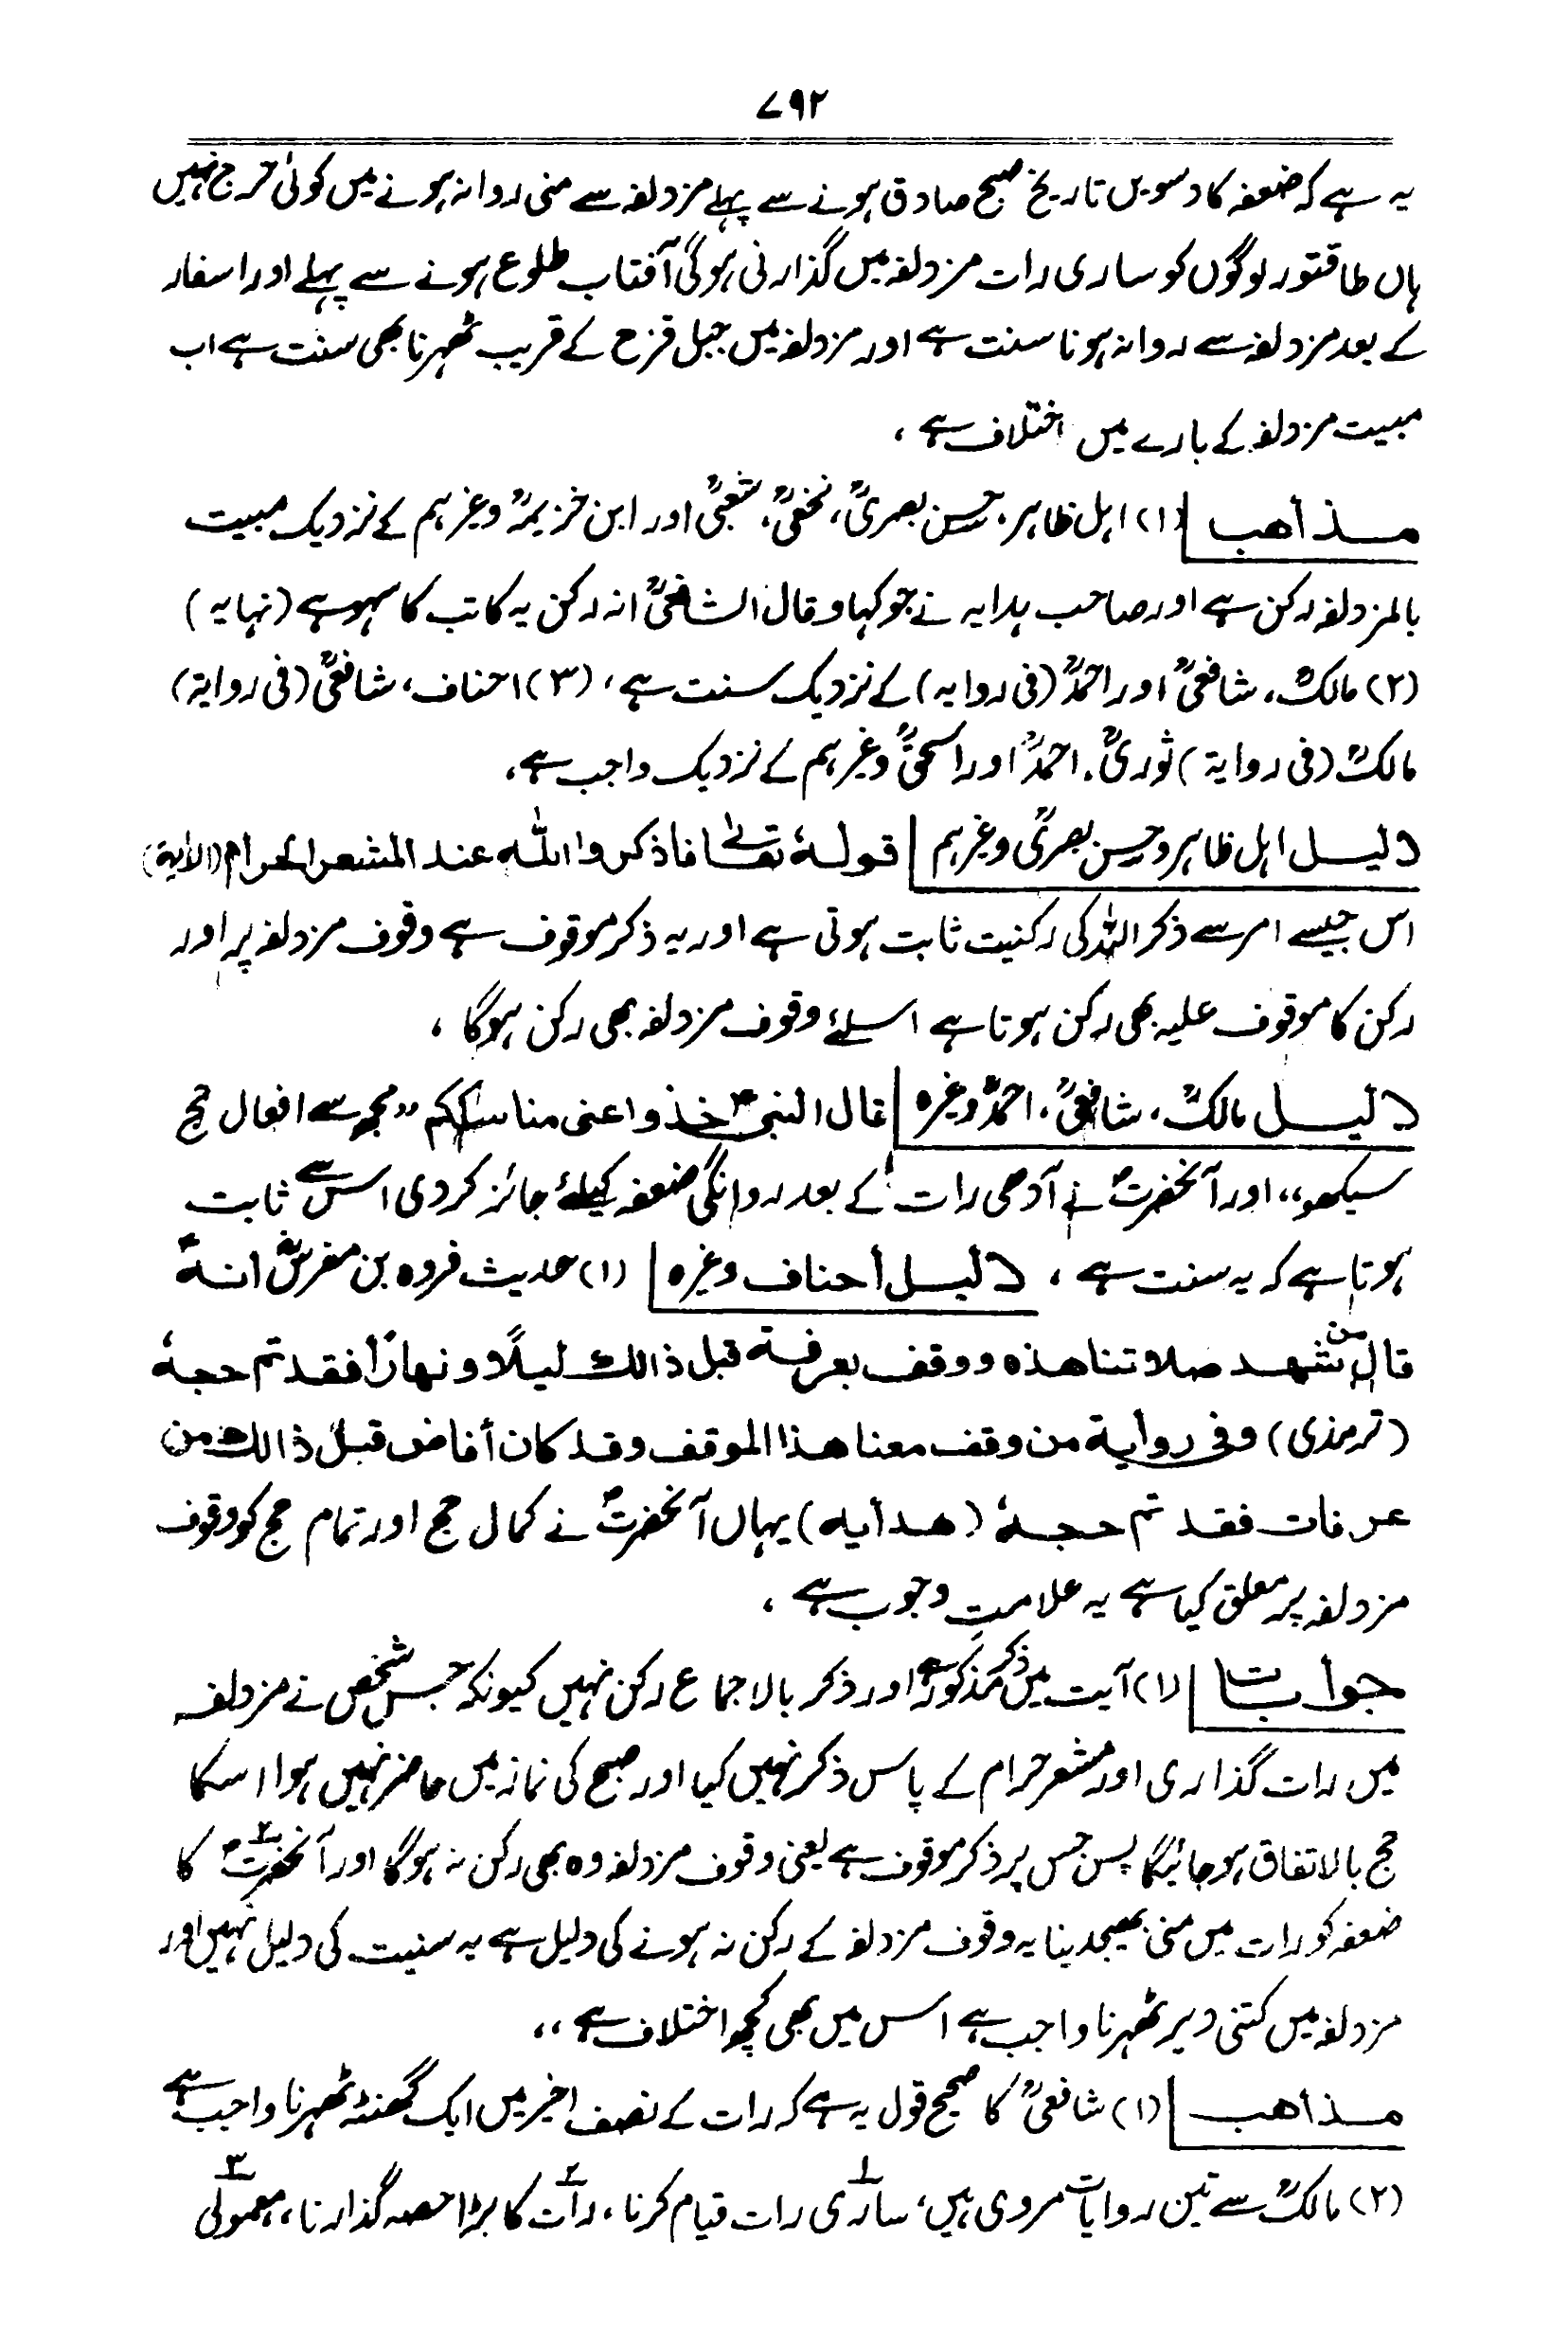 ۷۹۲
یہ ہے کہ ضعفہ کا دسویں تاریخ صبح صادق ہونے سے پہلے مزدلفہ سے منی روانہ ہونے میں کوئی حرج نہیں
ہاں طاقتور لوگوں کو ساری رات مزدلفہ میں گذارنی ہوگی آفتاب طلوع ہونے سے پہلے اور اسفار
کے بعد مزدلفہ سے روانہ ہونا سنت ہے اور مزدلفہ میں جبل قزح کے قریب ٹھہرنا بھی سنت ہے اب
مبیت مزدلفہ کے بارے میں اختلاف ہے ،
مذاھب (۱) اہل ظاہر، حسن بصریؒ، نخعیؒ، شعبیؒ اور ابن خزیمہؒ وغیرہم کے نزدیک مبیت
بالمزدلفہ رکن ہے اور صاحب ہدایہ نے جو کہا وقال الشافعیؒ انہ رکن یہ کاتب کا سہو ہے (نہایہ)
(۲) مالکؒ، شافعیؒ اور احمدؒ (فی روایہ) کے نزدیک سنت ہے، (۳) احناف، شافعیؒ (فی روایۃ)
مالکؒ (فی روایۃ) ثوریؒ، احمدؒ اور اسحٰقؒ وغیرہم کے نزدیک واجب ہے،
دلیل اہل ظاہر وحسن بصریؒ وغیرہم قولہٗ تعالٰی فاذکروا اللہ عند المشعر الحرام (الاٰیۃ)
اس جیسے امر سے ذکر اللہ کی رکنیت ثابت ہوتی ہے اور یہ ذکر موقوف ہے وقوف مزدلفہ پر اور
رکن کا موقوف علیہ بھی رکن ہوتا ہے اسلئے وقوف مزدلفہ بھی رکن ہوگا ،
دلیل مالکؒ، شافعیؒ، احمدؒ وغیرہ قال النبیؐ خذوا عنی مناسککم ،،مجھ سے افعال حج
سیکھو،، اور آنحضرتؐ نے آدھی رات کے بعد روانگی ضعفہ کیلئے جائز کر دی اس سے ثابت
ہوتا ہے کہ یہ سنت ہے ، دلیل أحناف وغیرہ (۱) حدیث فروہ بن مفرسؓ انہؐ
قال من شھد صلاتنا ھذہ ووقف بعرفۃ قبل ذالک لیلًا ونھارًا فقد تم حجہٗ
(ترمذی) وفی روأیۃ من وقف معنا ھذا الموقف وقد کان أفاض قبل ذالک من
عرفات فقد تم حجہٗ (ھدأیہ) یہاں آنحضرتؐ نے کمال حج اور تمام حج کو وقوف
مزدلفہ پر معلق کیا ہے یہ علامتِ وجوب ہے ،
جوأبات (۱) آیت میں ذکر مذکور ہے اور ذکر بالاجماع رکن نہیں کیونکہ جس شخص نے مزدلفہ
میں رات گذاری اور مشعر حرام کے پاس ذکر نہیں کیا اور صبح کی نماز میں حاضر نہیں ہوا اسکا
حج بالاتفاق ہو جائیگا پس جس پر ذکر موقوف ہے یعنی وقوف مزدلفہ وہ بھی رکن نہ ہوگا اور ۲ آنحضرتؐ کا
ضعفہ کو رات میں منی بھیجدینا یہ وقوف مزدلفہ کے رکن نہ ہونے کی دلیل ہے یہ سنیت کی دلیل نہیں اور
مزدلفہ میں کتنی دیر ٹھہرنا واجب ہے اس میں بھی کچھ اختلاف ہے ،،
مذأھب (۱) شافعیؒ کا صحیح قول یہ ہے کہ رات کے نصف اخیر میں ایک گھنٹہ ٹھہرنا واجب ہے
(۲) مالکؒ سے تین روایات مروی ہیں، ۱ ساری رات قیام کرنا، ۲ رات کا بڑا حصہ گذارنا، ۳ معمولی